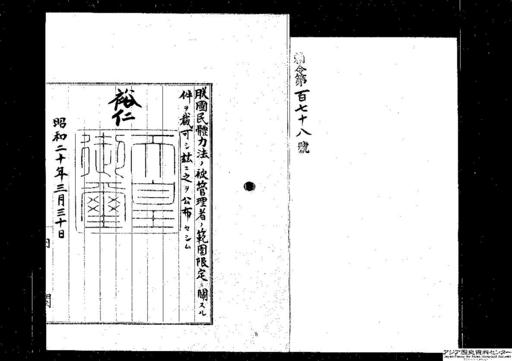 勅令第百七十八號
朕國民體力法ノ被管理者ノ範圍限定ニ關スル
件ヲ裁可シ玆ニ之ヲ公布セシム
裕仁
天皇
御璽
昭和二十年三月三十日
内閣
アジア歴史資料センター